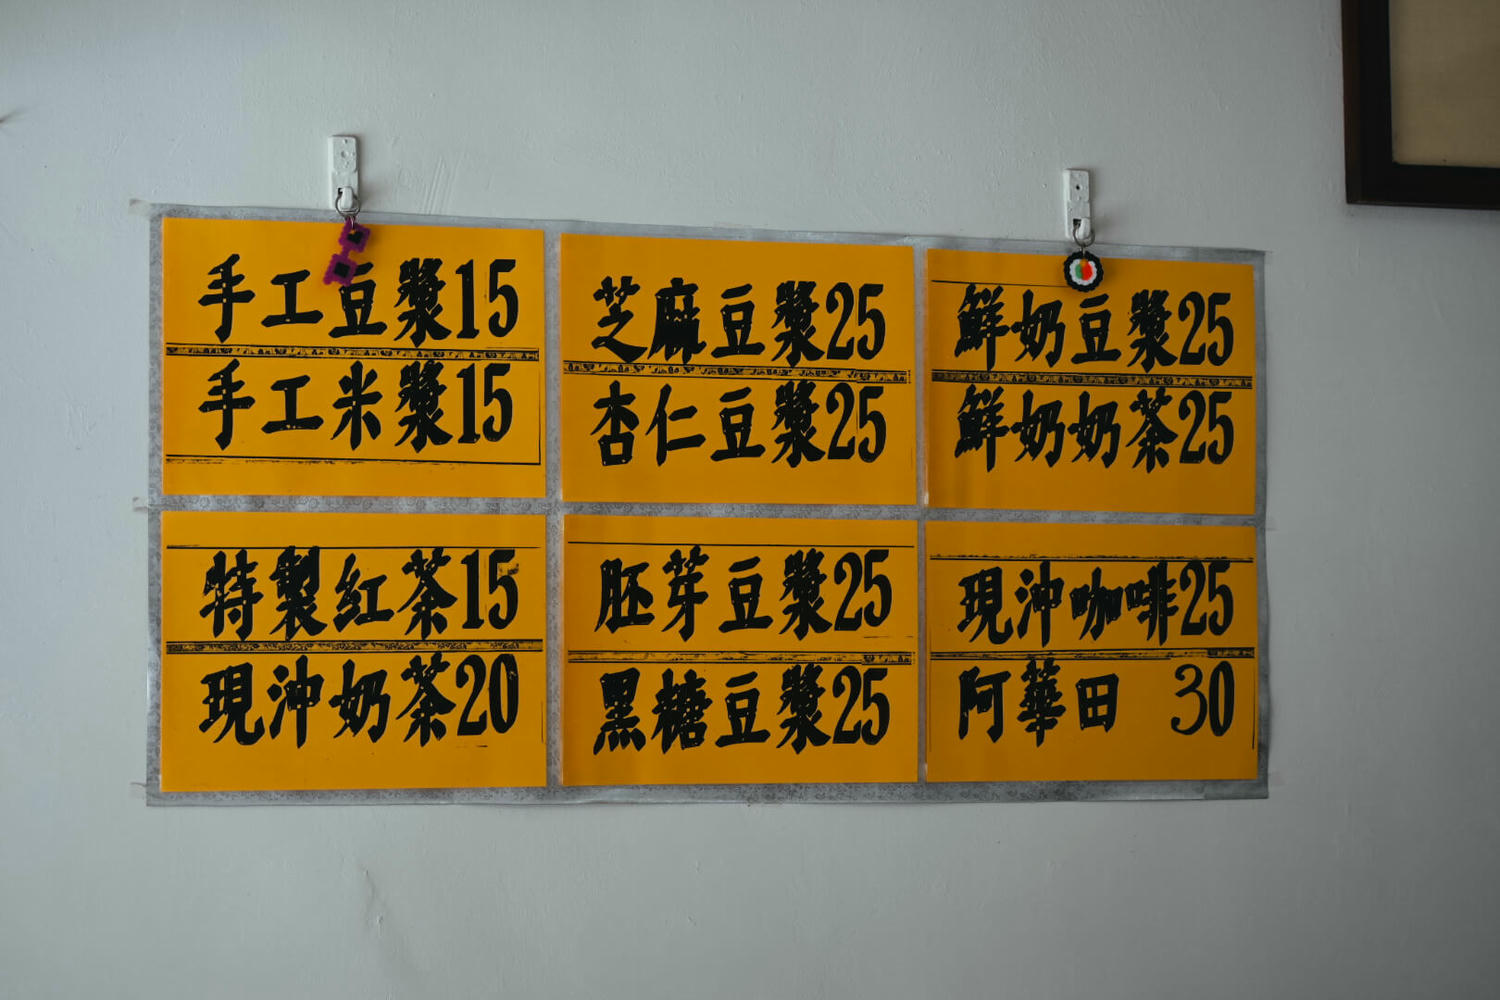 手工豆漿15
手工米漿15
芝麻豆漿25
杏仁豆漿25
鮮奶豆漿25
鮮奶奶茶25
特製紅茶15
現沖奶茶20
胚芽豆漿25
黑糖豆漿25
現沖咖啡25
阿華田 30